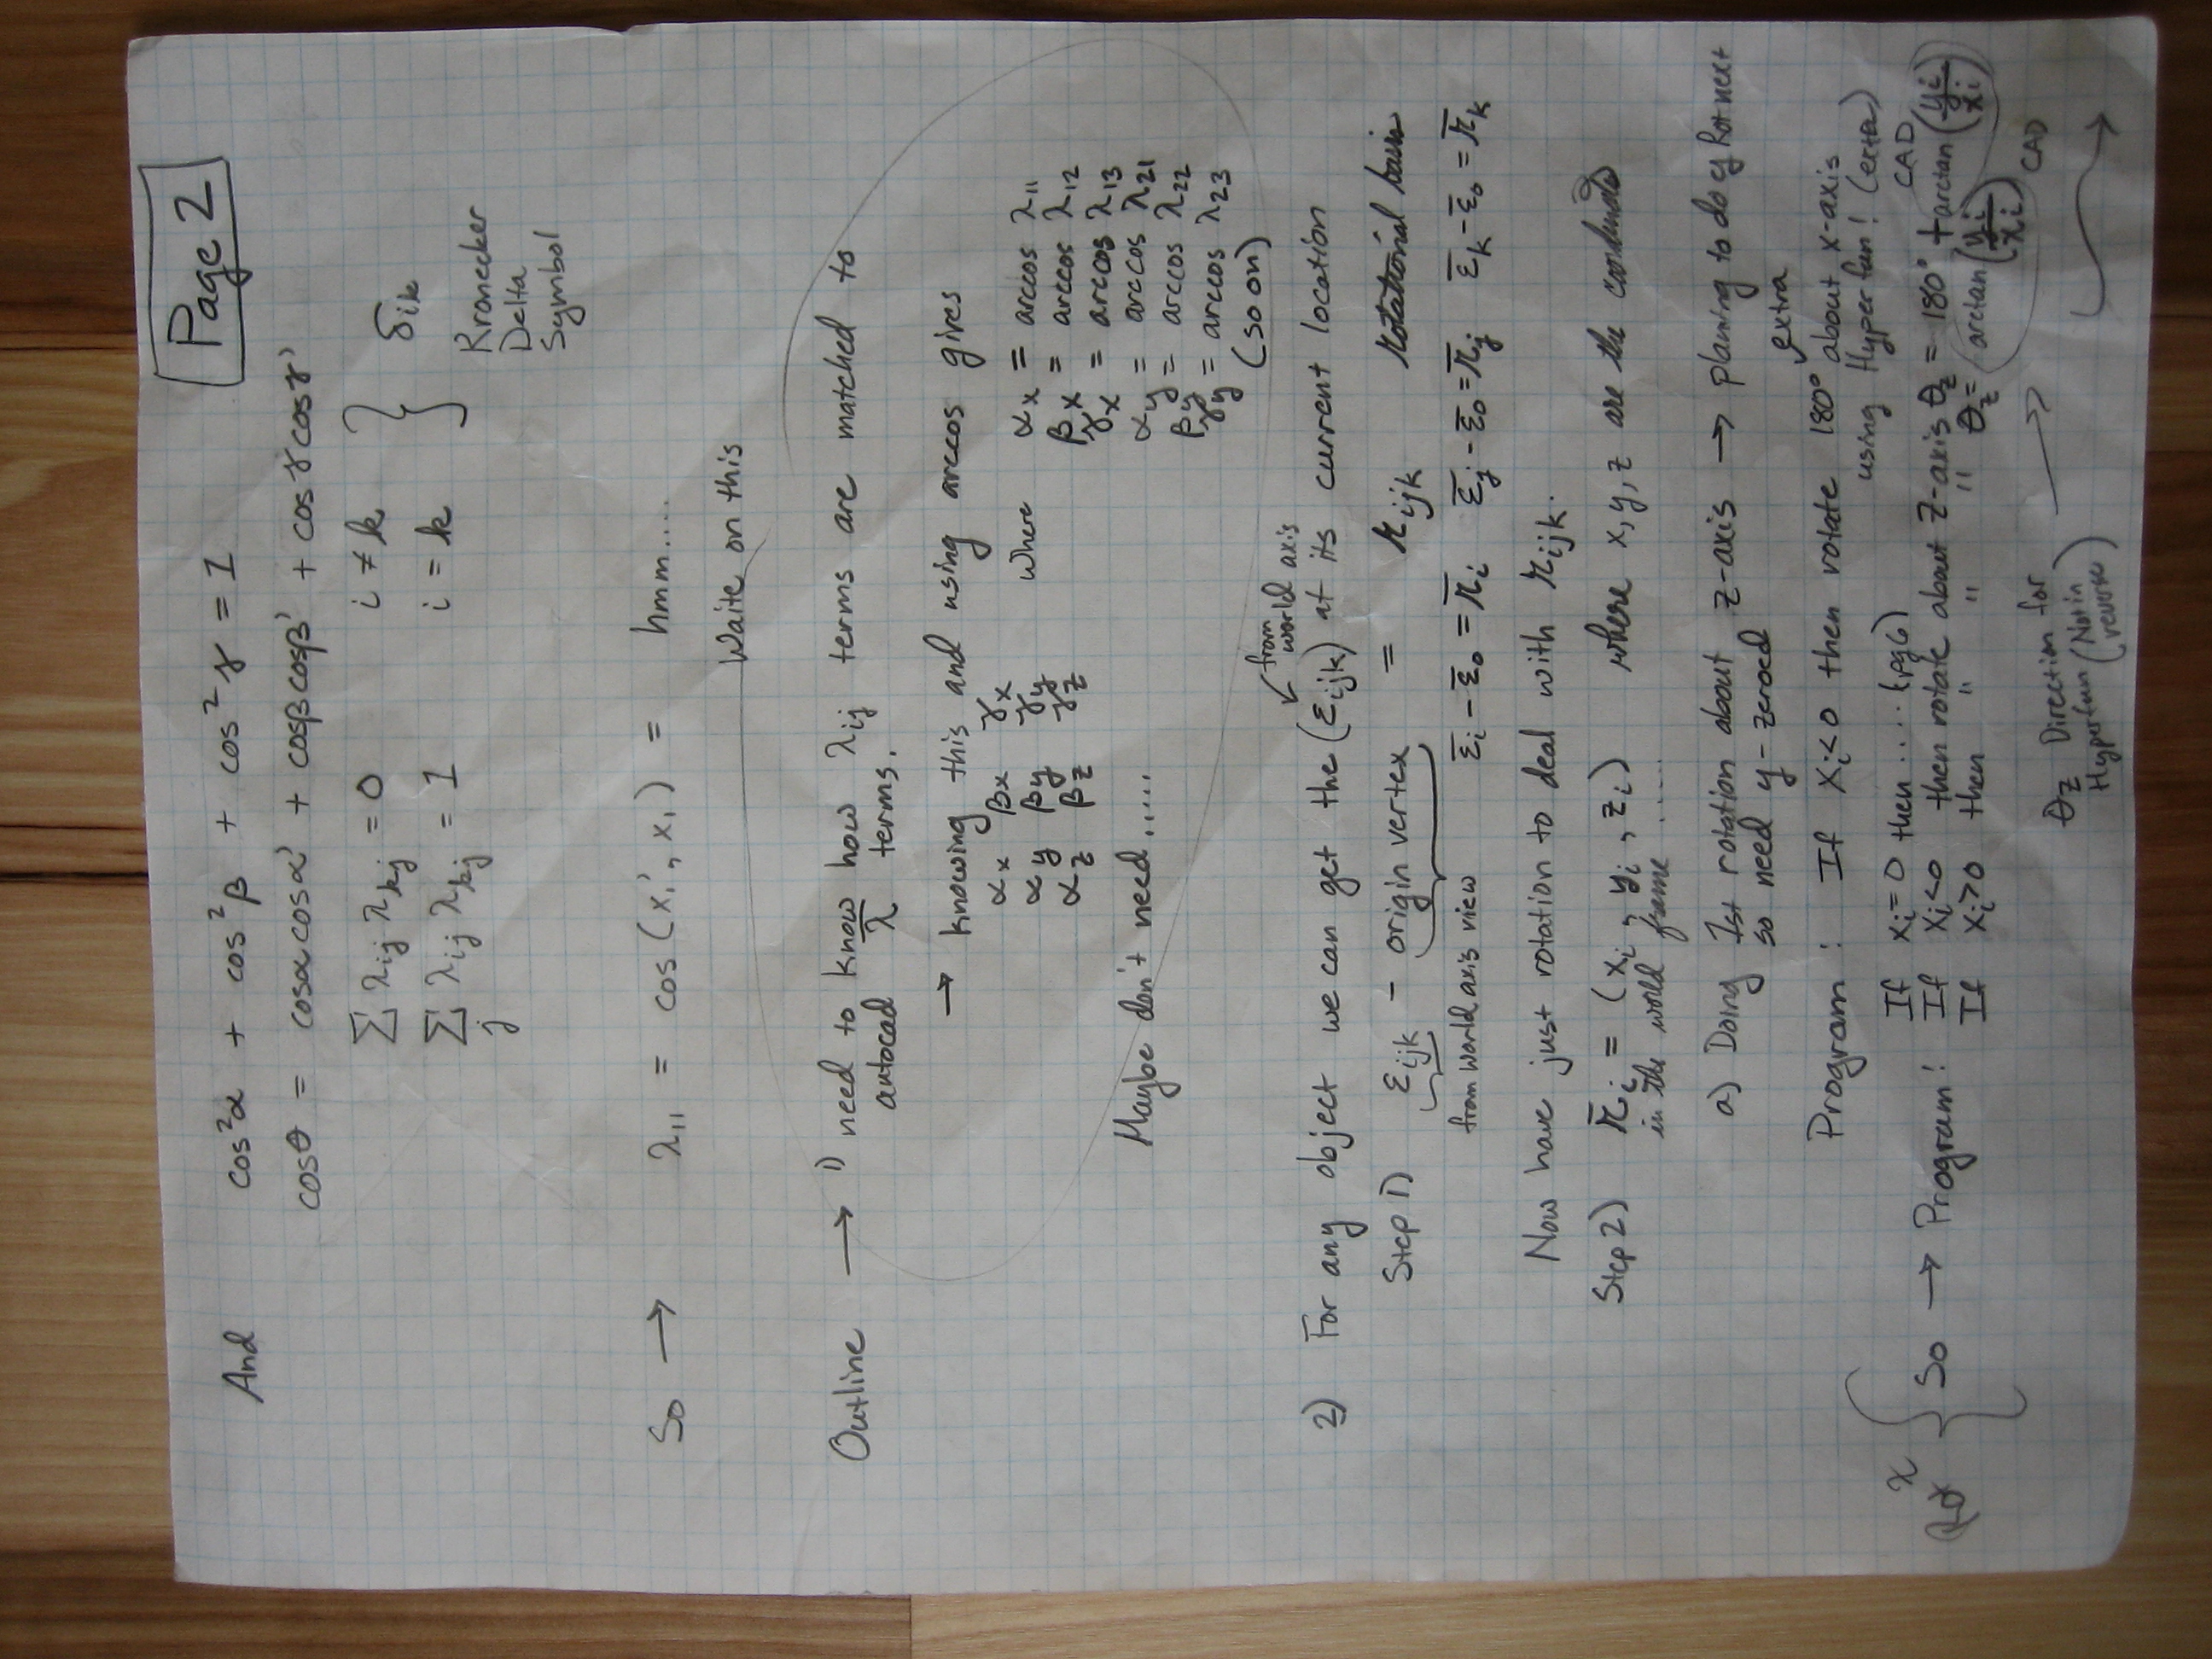 Page 2
And cos²α + cos²β + cos²γ = 1
cosθ = cosα cosα' + cosβ cosβ' + cosγ cosγ'
∑ λij λkj = 0 i ≠ k
∑ λij λkj = 1 i = k
j
} δik
Rronecker
Delta
Symbol
So → λ11 = cos(x1', x1) = hmm....
Waite on this
Outline → 1) need to know how λij terms are matched to
autocad λ terms.
→ knowing this and using arccos gives
αx βx γx
αy βy γy
αz βz γz
where αx = arccos λ11
βx = arccos λ12
γx = arccos λ13
αy = arccos λ21
βy = arccos λ22
γy = arccos λ23
(so on)
Maybe don't need.....
2) For any object we can get the (εijk) at its current location
from
world axis
Step 1) εijk - origin vertex = rijk rotational basis
from world axis view ε̄i - ε̄o = r̄i ε̄j - ε̄o = r̄j ε̄k - ε̄o = r̄k
Now have just rotation to deal with rijk.
Step 2) r̄i = (xi, yi, zi) where x, y, z are the coordinates
in the world frame .....
a) Doing 1st rotation about z-axis → planing to do y Rot next
so need y-zeroed
extra
Program: If xi<0 then rotate 180° about x-axis
using Hyperfan! (extra)
So → Program: If xi = 0 then .... (pg 6)
If xi<0 then rotate about z-axis θz = 180° + arctan(yi/xi) CAD
If xi>0 then " " " " θz = arctan(yi/xi) CAD
θz Direction for
Hyperfan (Not in
reverse)